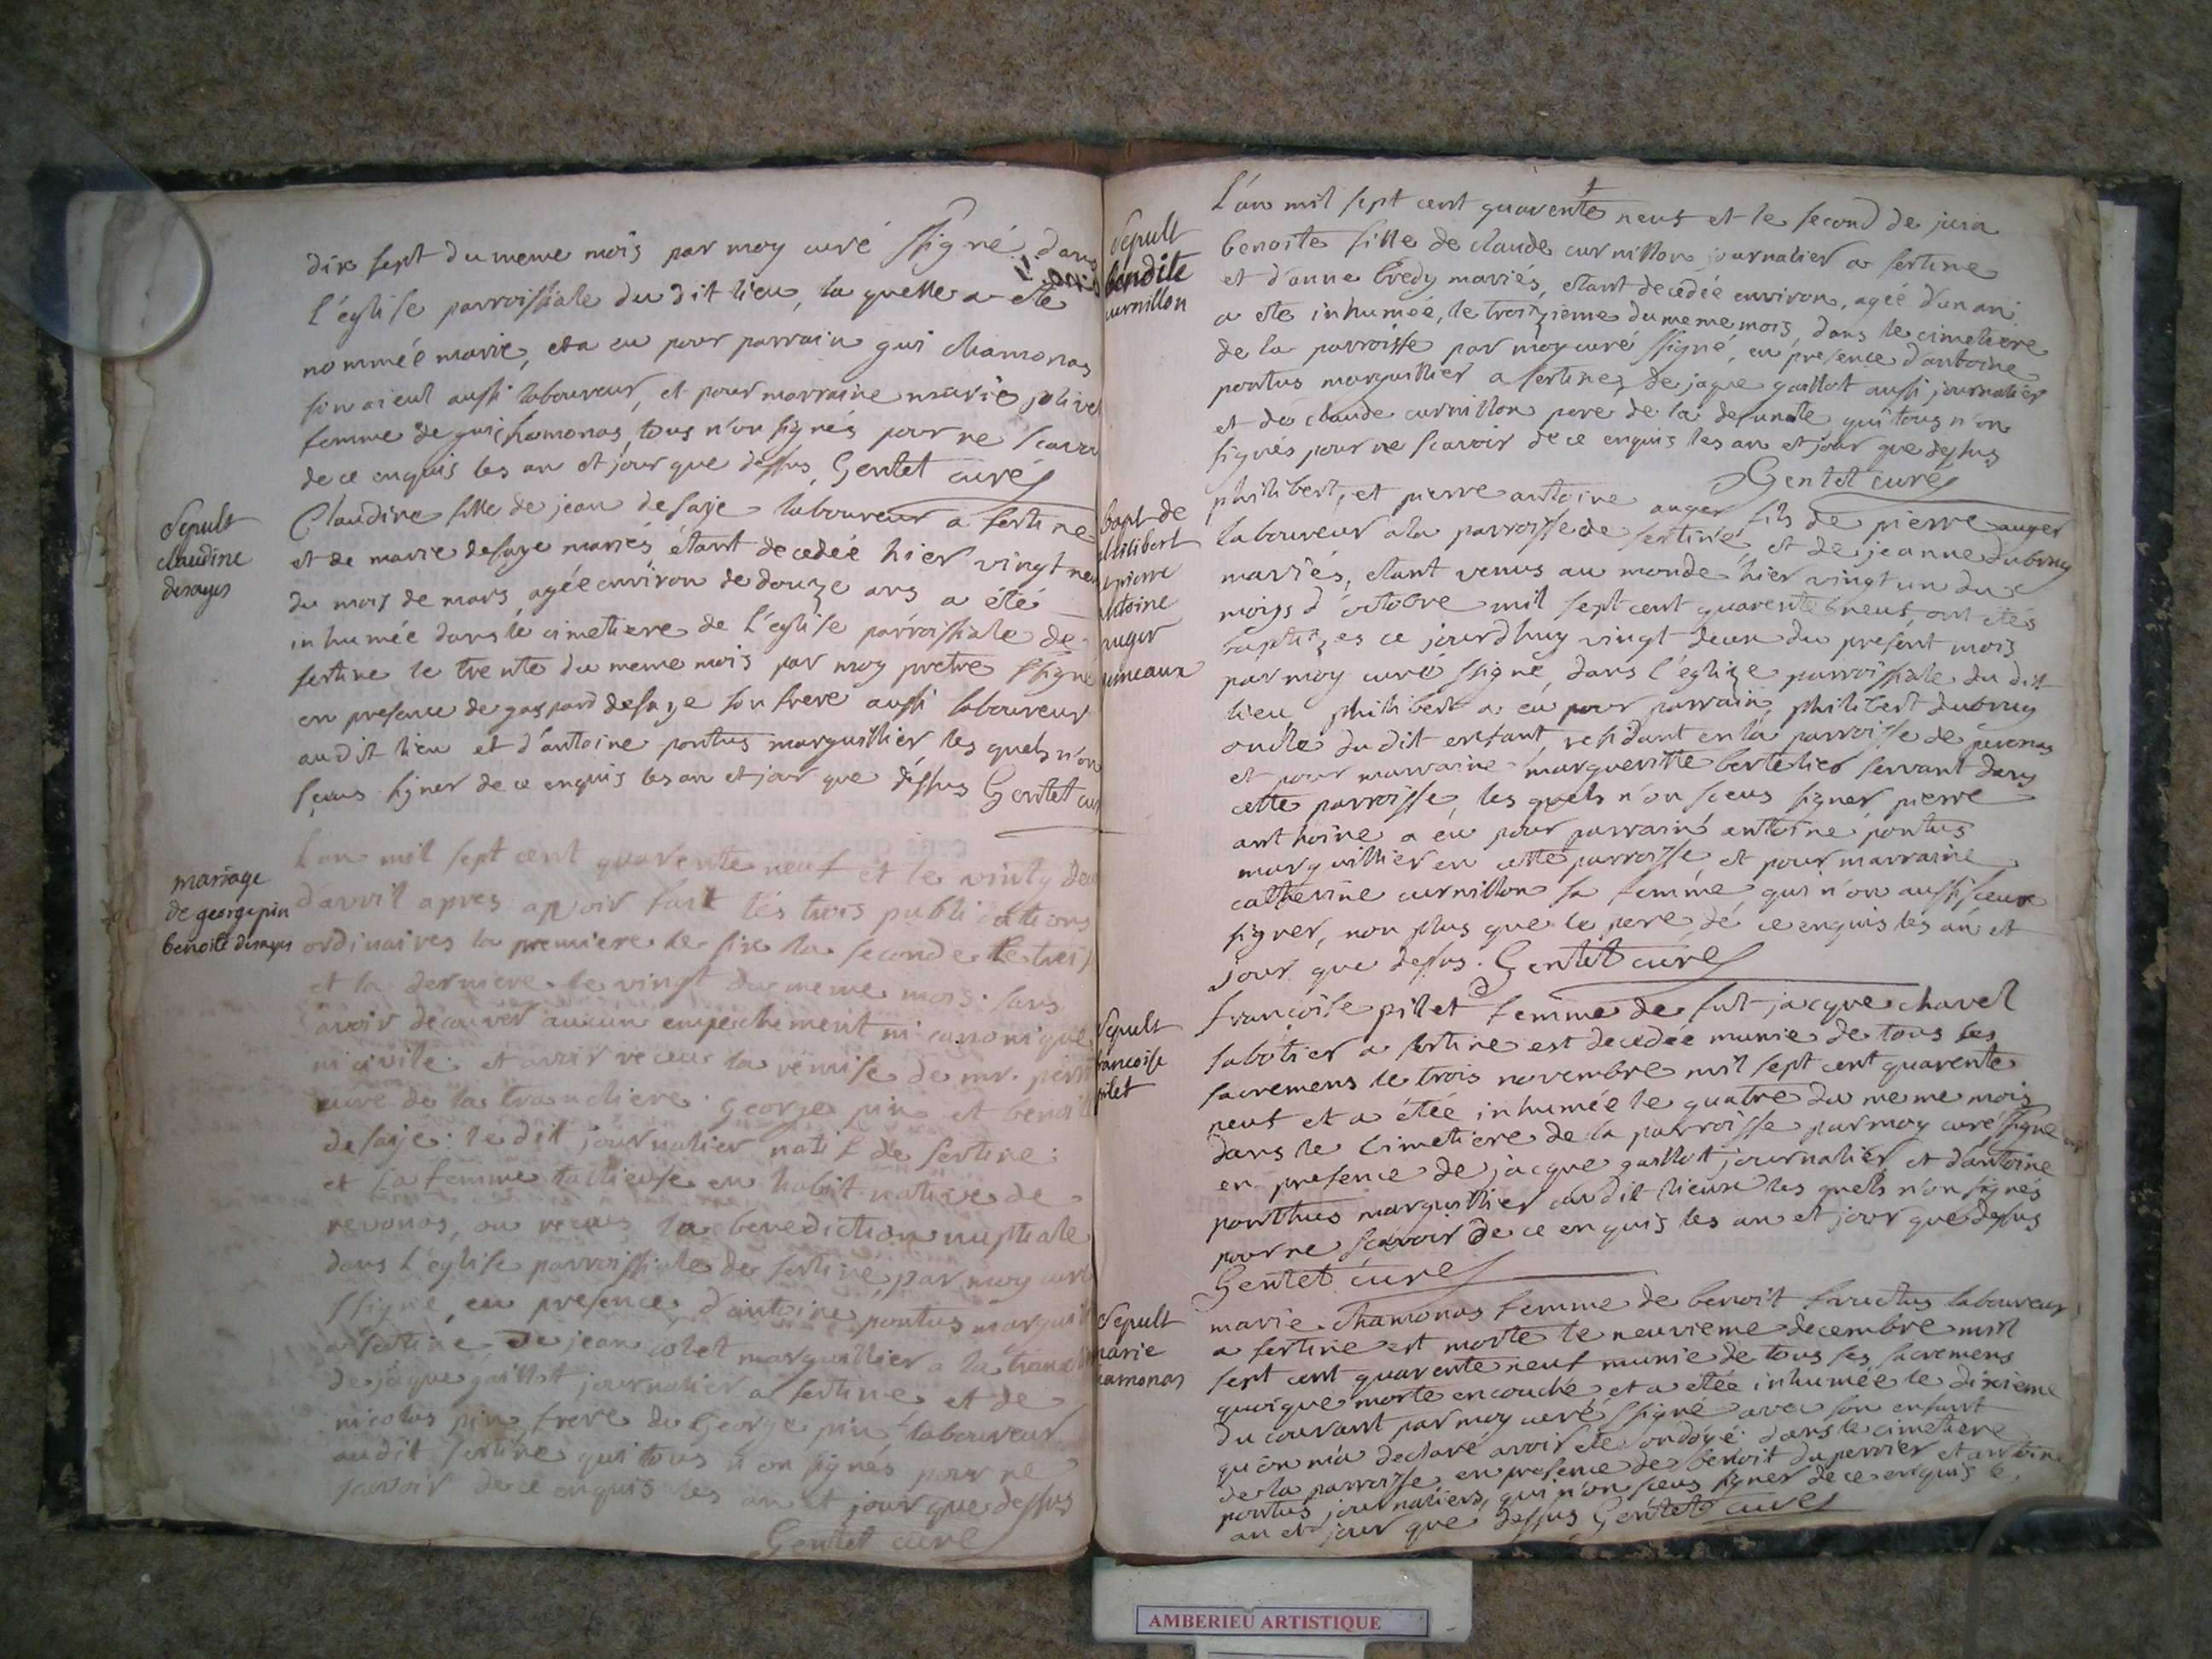 dix sept du meme mois par moy curé ssigné dans
l'église parroissiale du dit lieu, la quelle a eté
nommée marie, et a eu pour parrain gui chamonas
son aieul aussi laboureur, et pour marraine marie
femme de gui chamonas, tous n'on signés pour ne scavoi
de ce enquis les an et jour que dessus, Gentet curé
Sepult
claudine
desayes
Claudine fille de jean desaye laboureur a sertine
et de marie desaye mariés étant decedée hier vingt neu
du mois de mars, agée environ de douze ans a été
inhumée dans le cimetiere de l'eglise parroissiale de
sertine le trente du meme mois par moy pretre ssigné
en presence de gaspard desaye son frere aussi laboureur
audit lieu et d'antoine pontus marguillier les quels n'on
sceus signer de ce enquis les an et jour que dessus Gentet cur
mariage
de george pin
benoite desayes
L'an mil sept cent quarente neuf et le vinty deu
d'avril apres apvoir fait les trois publications
ordinaires la premiere le six la seconde le treiz
et la derniere le vingt du meme mois sans
avoir decouver aucun empechement ni canonique
ni civile et avoir receu la remise de mr.
curé de la trancliere george pin et benoite
desaje: le dit journalier natif de sertine:
et sa femme tallieuse en habit native de
revonas, on receus la benediction nuptiale
dans l'église parroissiale de sertine, par moy curé
ssigné, en presence d'antoine pontus marguill
a sertine, de jean colet marguillier a la trancl
de jaque gaillot journalier a sertine et de
nicolas pin frere de George pin laboureur
audit sertine qui tous n'on signés pour ne
scavoir de ce enquis les an et jour que dessus
Gentet curé
Sepult
bendite
curnillon
L'an mil sept cent quarente neuf et le second de juin
benoite fille de claude curnillon journalier a sertine
et d'anne bredy mariés, etant decedée environ, agée d'un an
a ete inhumée, le troizieme du meme mois, dans le cimetiere
de la parroisse par moy curé ssigné, en presence d'antoine
pontus marguillier a sertine, de jaque gaillot aussi journalier
et de claude curnillon pere de la defunte qui tous n'on
signés pour ne scavoir de ce enquis les an et jour que dessus
Gentet curé
bapt de
philibert
et pierre
antoine
auger
jumeaux
philibert, et pierre antoine auger fils de pierre auger
laboureur a la parroisse de sertine, et de jeanne dubruy
mariés, etant venus au monde hier vingt un du
moiys d'octobre mil sept cent quarente neuf, ont etés
baptizes ce jourdhuy vingt deux du present mois
par moy curé ssigné, dans l'eglize parroissiale du dit
lieu philibert a eu pour parrain, philibert dubruy
oncle du dit enfant, residant en la parroisse de peronas
et pour marraine margueritte bertelier servant dans
cette parroisse, les quels n'on sceus signer, pierre
anthoine a eu pour parrain antoine pontus
marguillier en cette parroisse et pour marraine
catherine curnillon sa femme qui n'on aussi sceux
signer, non plus que le pere, de ce enquis les an et
jour que dessus. Gentet curé
Sepult
francoise
pilet
francoise pillet femme de fut jacque chavel
sabotier a sertine est decedée munie de tous les
sacremens le trois novembre mil sept cent quarente
neuf et a étée inhumée le quatre du meme mois
dans le cimetiere de la parroisse par moy curé ssigné
en presence de jacque gaillot journalier et d'antoine
ponthus marguillier audit lieux les quels n'on signés
pour ne scavoir de ce enquis les an et jour que dessus
Gentet curé
Sepult
marie
camonas
marie chamonas femme de benoit fructus laboureur
a sertine est morte le neuvieme decembre mil
sept cent quarente neuf munie de tous ses sacremens
quoique morte en couche, et a étée inhumée le dixieme
du courant par moy curé ssigné avec son enfant
qu'on m'a declaré avoir eté ondoyé. dans le cimetiere
de la parroisse en presence de benoit duperrier et antoine
pontus journaliers, qui n'on sceus signer de ce enquis le
an et jour que dessus Gentet curé
AMBERIEU ARTISTIQUE